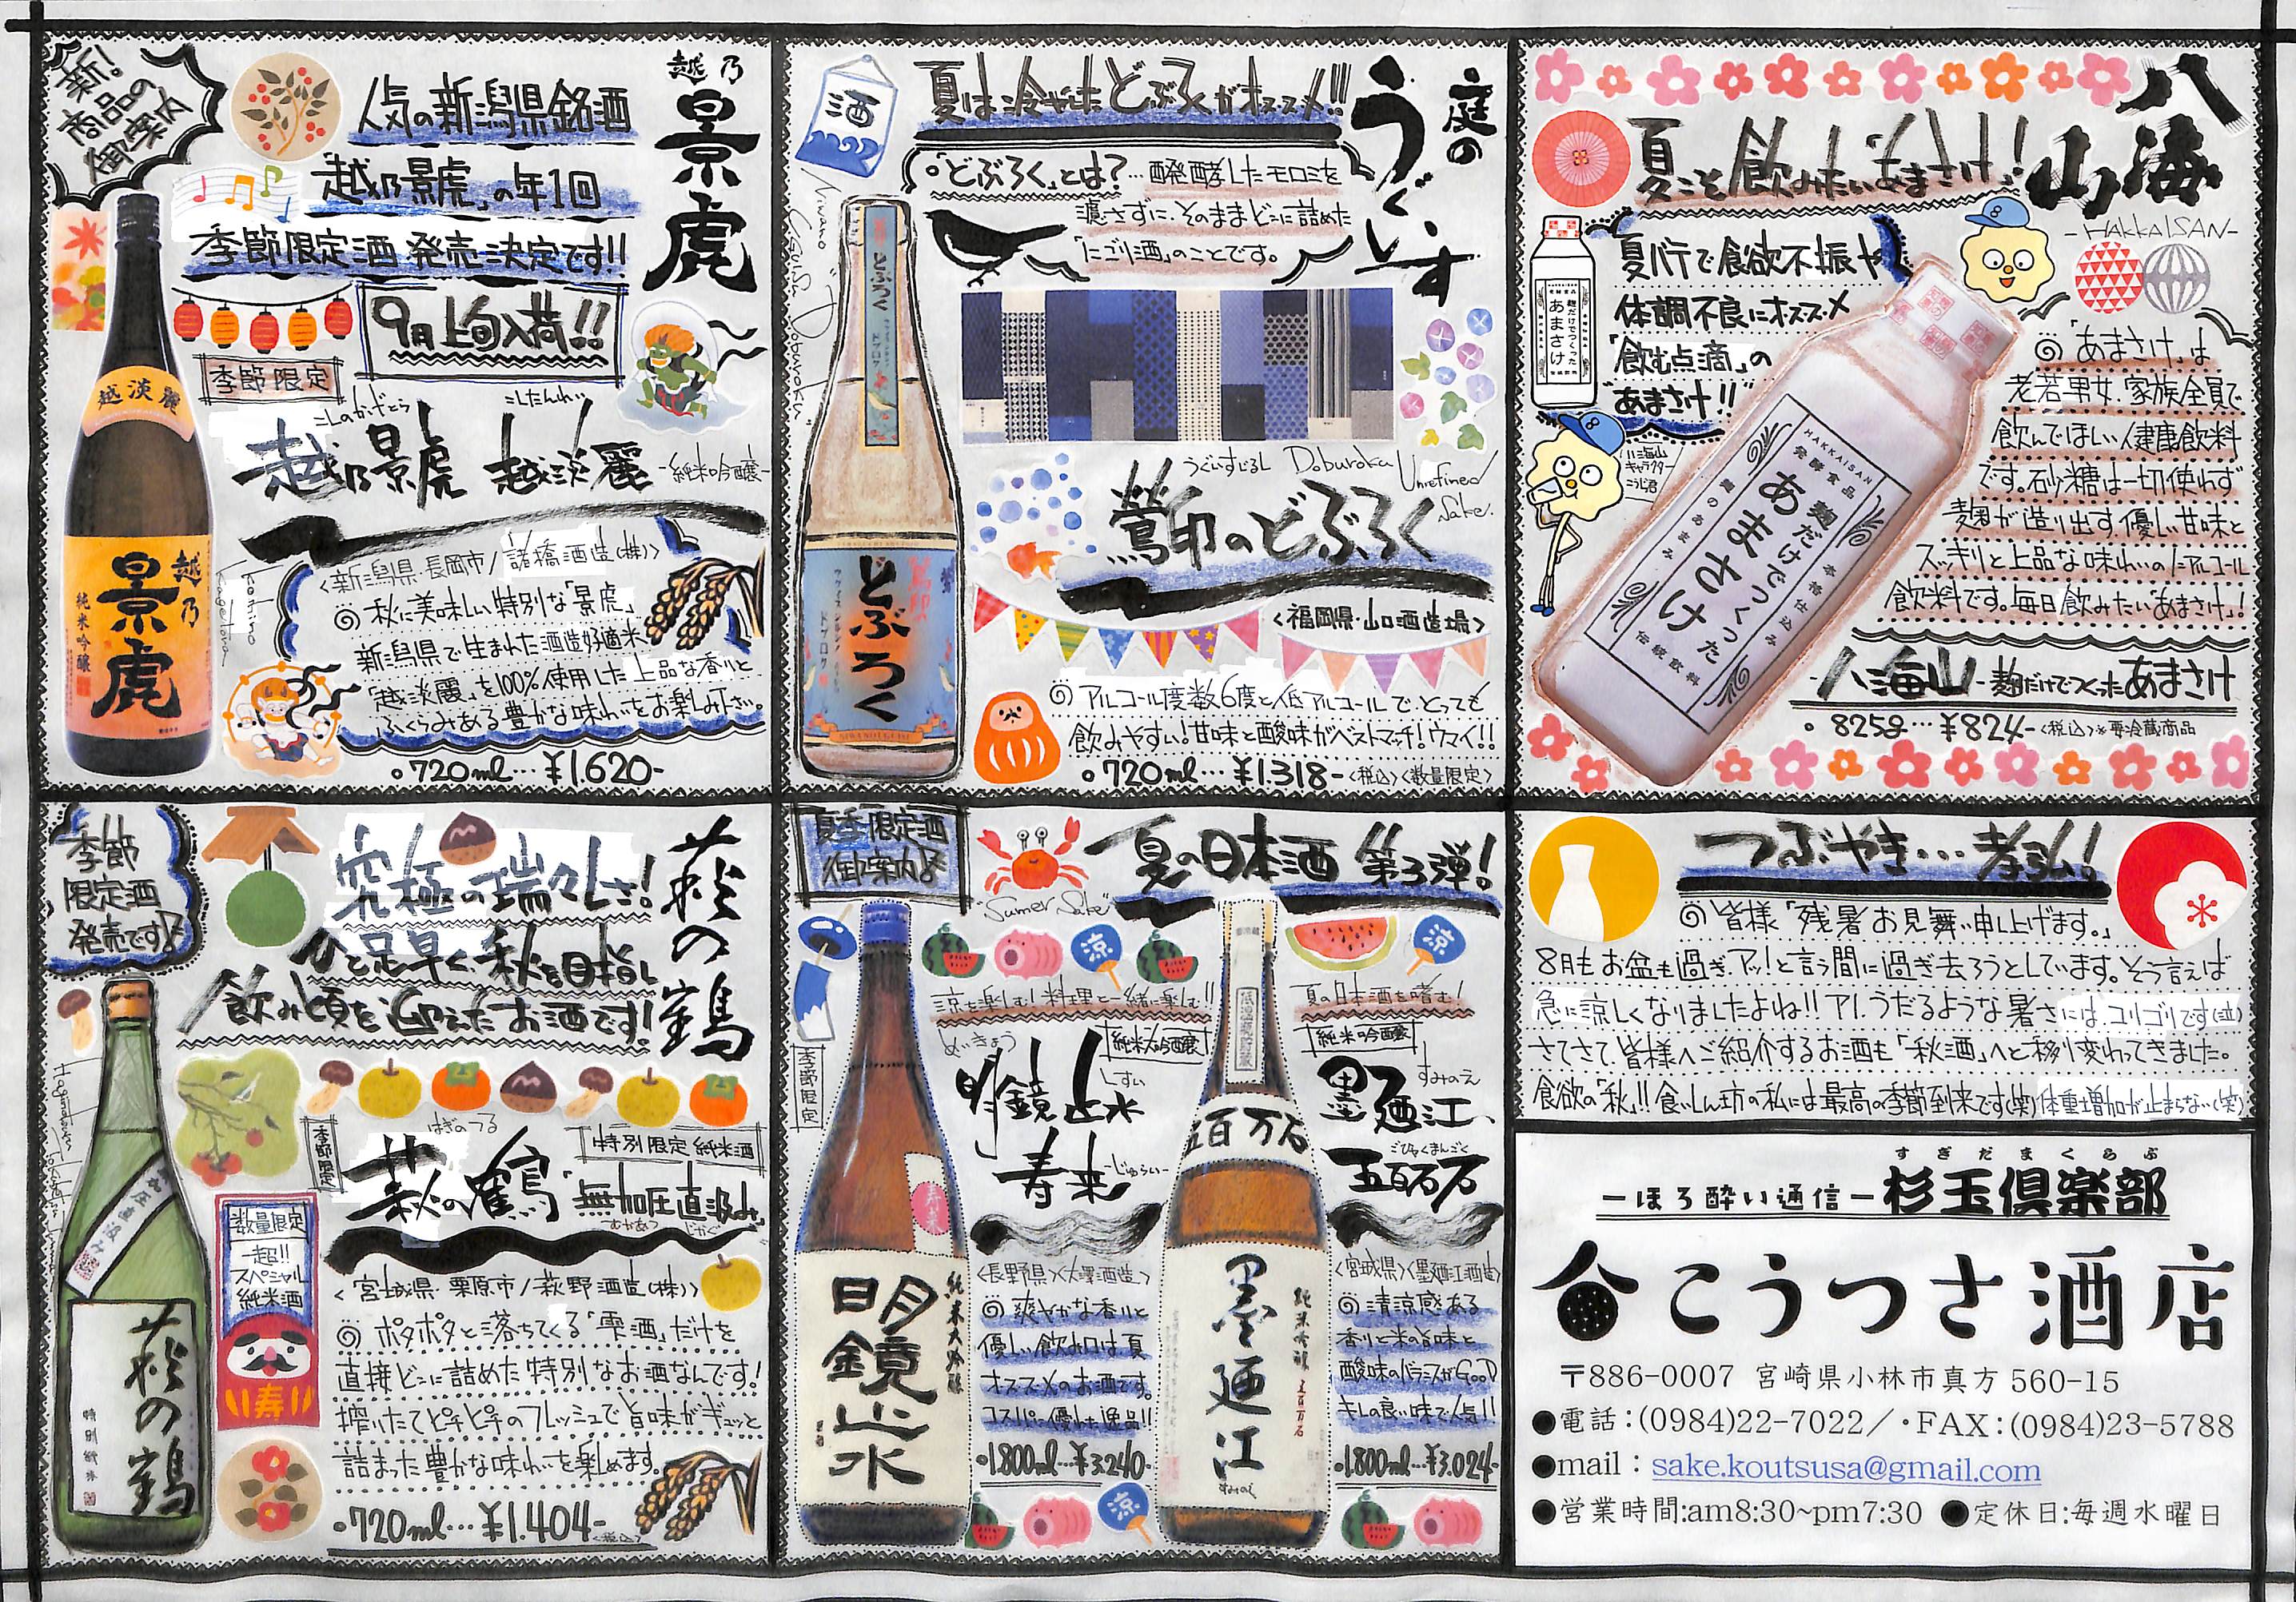 新!
商品の
御案内
人気の新潟県銘酒
「越乃景虎」の年1回
季節限定酒 発売決定です!!
9月上旬入荷!!
越乃
景虎
季節限定
こしのかげとら
こしたんれい
越乃景虎 越淡麗 -純米吟醸-
<新潟県・長岡市/諸橋酒造(株)>
◎ 秋に美味しい特別な「景虎」
新潟県で生まれた酒造好適米
「越淡麗」を100%使用した上品な香りと
ふくらみある豊かな味わいをお楽しみ下さい。
・720ml…¥1.620-
越淡麗
越乃
景虎
純米吟醸
Koshino
Kagetora
酒
夏は冷やしたどぶろくがオススメ!!!
庭の
うぐいす
"どぶろく"とは?…醗酵したモロミを
濾さずに、そのままビンに詰めた
「にごり酒」のことです。
Doburoku Unrefined
Sake.
鶯印のどぶろく
<福岡県・山口酒造場>
◎ アルコール度数6度と低アルコールで、とっても
飲みやすい!甘味と酸味がベストマッチ!ウマイ!!
・720ml…¥1.318-<税込><数量限定>
どぶろく
鶯印
どぶろく
八海山
-HAKKAISAN-
夏こそ飲みたい"あまさけ"!
夏バテで食欲不振や
体調不良にオススメ
「飲む点滴」の
"あまさけ"!!
麹だけでつくった
あまさけ
八海山
キャラクター
こうじ君
HAKKAISAN
発酵食品
麹だけでつくった
あまさけ
麹のあまみ
本格仕込み
伝統飲料
◎「あまさけ」は
老若男女、家族全員で
飲んでほしい健康飲料
です。砂糖は一切使わず
麹が造り出す優しい甘味と
スッキリと上品な味わいのノンアルコール
飲料です。毎日飲みたい"あまさけ"!
八海山-麹だけでつくったあまさけ
・825g…¥824-<税込>※要冷蔵商品
季節
限定酒
発売です♪
究極の瑞々しさ!
ひと足早く、秋を目指し
飲み頃を迎えたお酒です!
萩の鶴
季節限定
はぎのつる
特別限定純米酒
萩の鶴 無加圧直汲み
むかあつ じかくみ
数量限定
超!!
スペシャル
純米酒
寿
<宮城県・栗原市/萩野酒造(株)>
◎ ポタポタと落ちてくる「雫酒」だけを
直接ビンに詰めた特別なお酒なんです!
搾りたてピチピチのフレッシュで旨味がギュッと
詰まった豊かな味わいを楽しめます。
・720ml…¥1.404-<税込>
無加圧直汲み
萩の鶴
特別純米
夏季限定酒
御案内♪
夏の日本酒 第3弾!
"Sumer Sake"
涼
涼
涼を楽しむ!料理と一緒に楽しむ!!
季節限定
めいきょう
しすい
純米大吟醸
明鏡止水
寿来-じゅらい-
<長野県><大澤酒造>
◎ 爽やかな香りと
優しい飲み口は夏
オススメのお酒です。
コスパに優れた逸品!!
・1.800ml…¥3.240-
純米大吟醸
明鏡止水
涼
夏の日本酒を嗜む!
純米吟醸
すみのえ
墨廼江
ごひゃくまんごく
五百万石
<宮城県><墨廼江酒造>
◎ 清涼感ある
香りと米の旨味と
酸味のバランスがGooD
キレの良い味で人気!!
・1.800ml…¥3.024-
五百万石
純米吟醸 五百万石
墨廼江
すみのえ
つぶやき…孝弘!
◎ 皆様「残暑お見舞い申し上げます。」
8月もお盆も過ぎ、アッ!と言う間に過ぎ去ろうとしています。そう言えば
急に涼しくなりましたよね!! アノ、うだるような暑さには、コリゴリです(泣)
さてさて、皆様へご紹介するお酒も「秋酒」へと移り変わってきました。
食欲の「秋」!! 食いしん坊の私には最高の季節到来です(笑)体重増加が止まらない(笑)
すぎだまくらぶ
－ほろ酔い通信－杉玉倶楽部
こうつさ酒店
〒886-0007 宮崎県小林市真方 560-15
●電話：(0984)22-7022／・FAX：(0984)23-5788
●mail：sake.koutsusa@gmail.com
●営業時間:am8:30~pm7:30 ●定休日:毎週水曜日